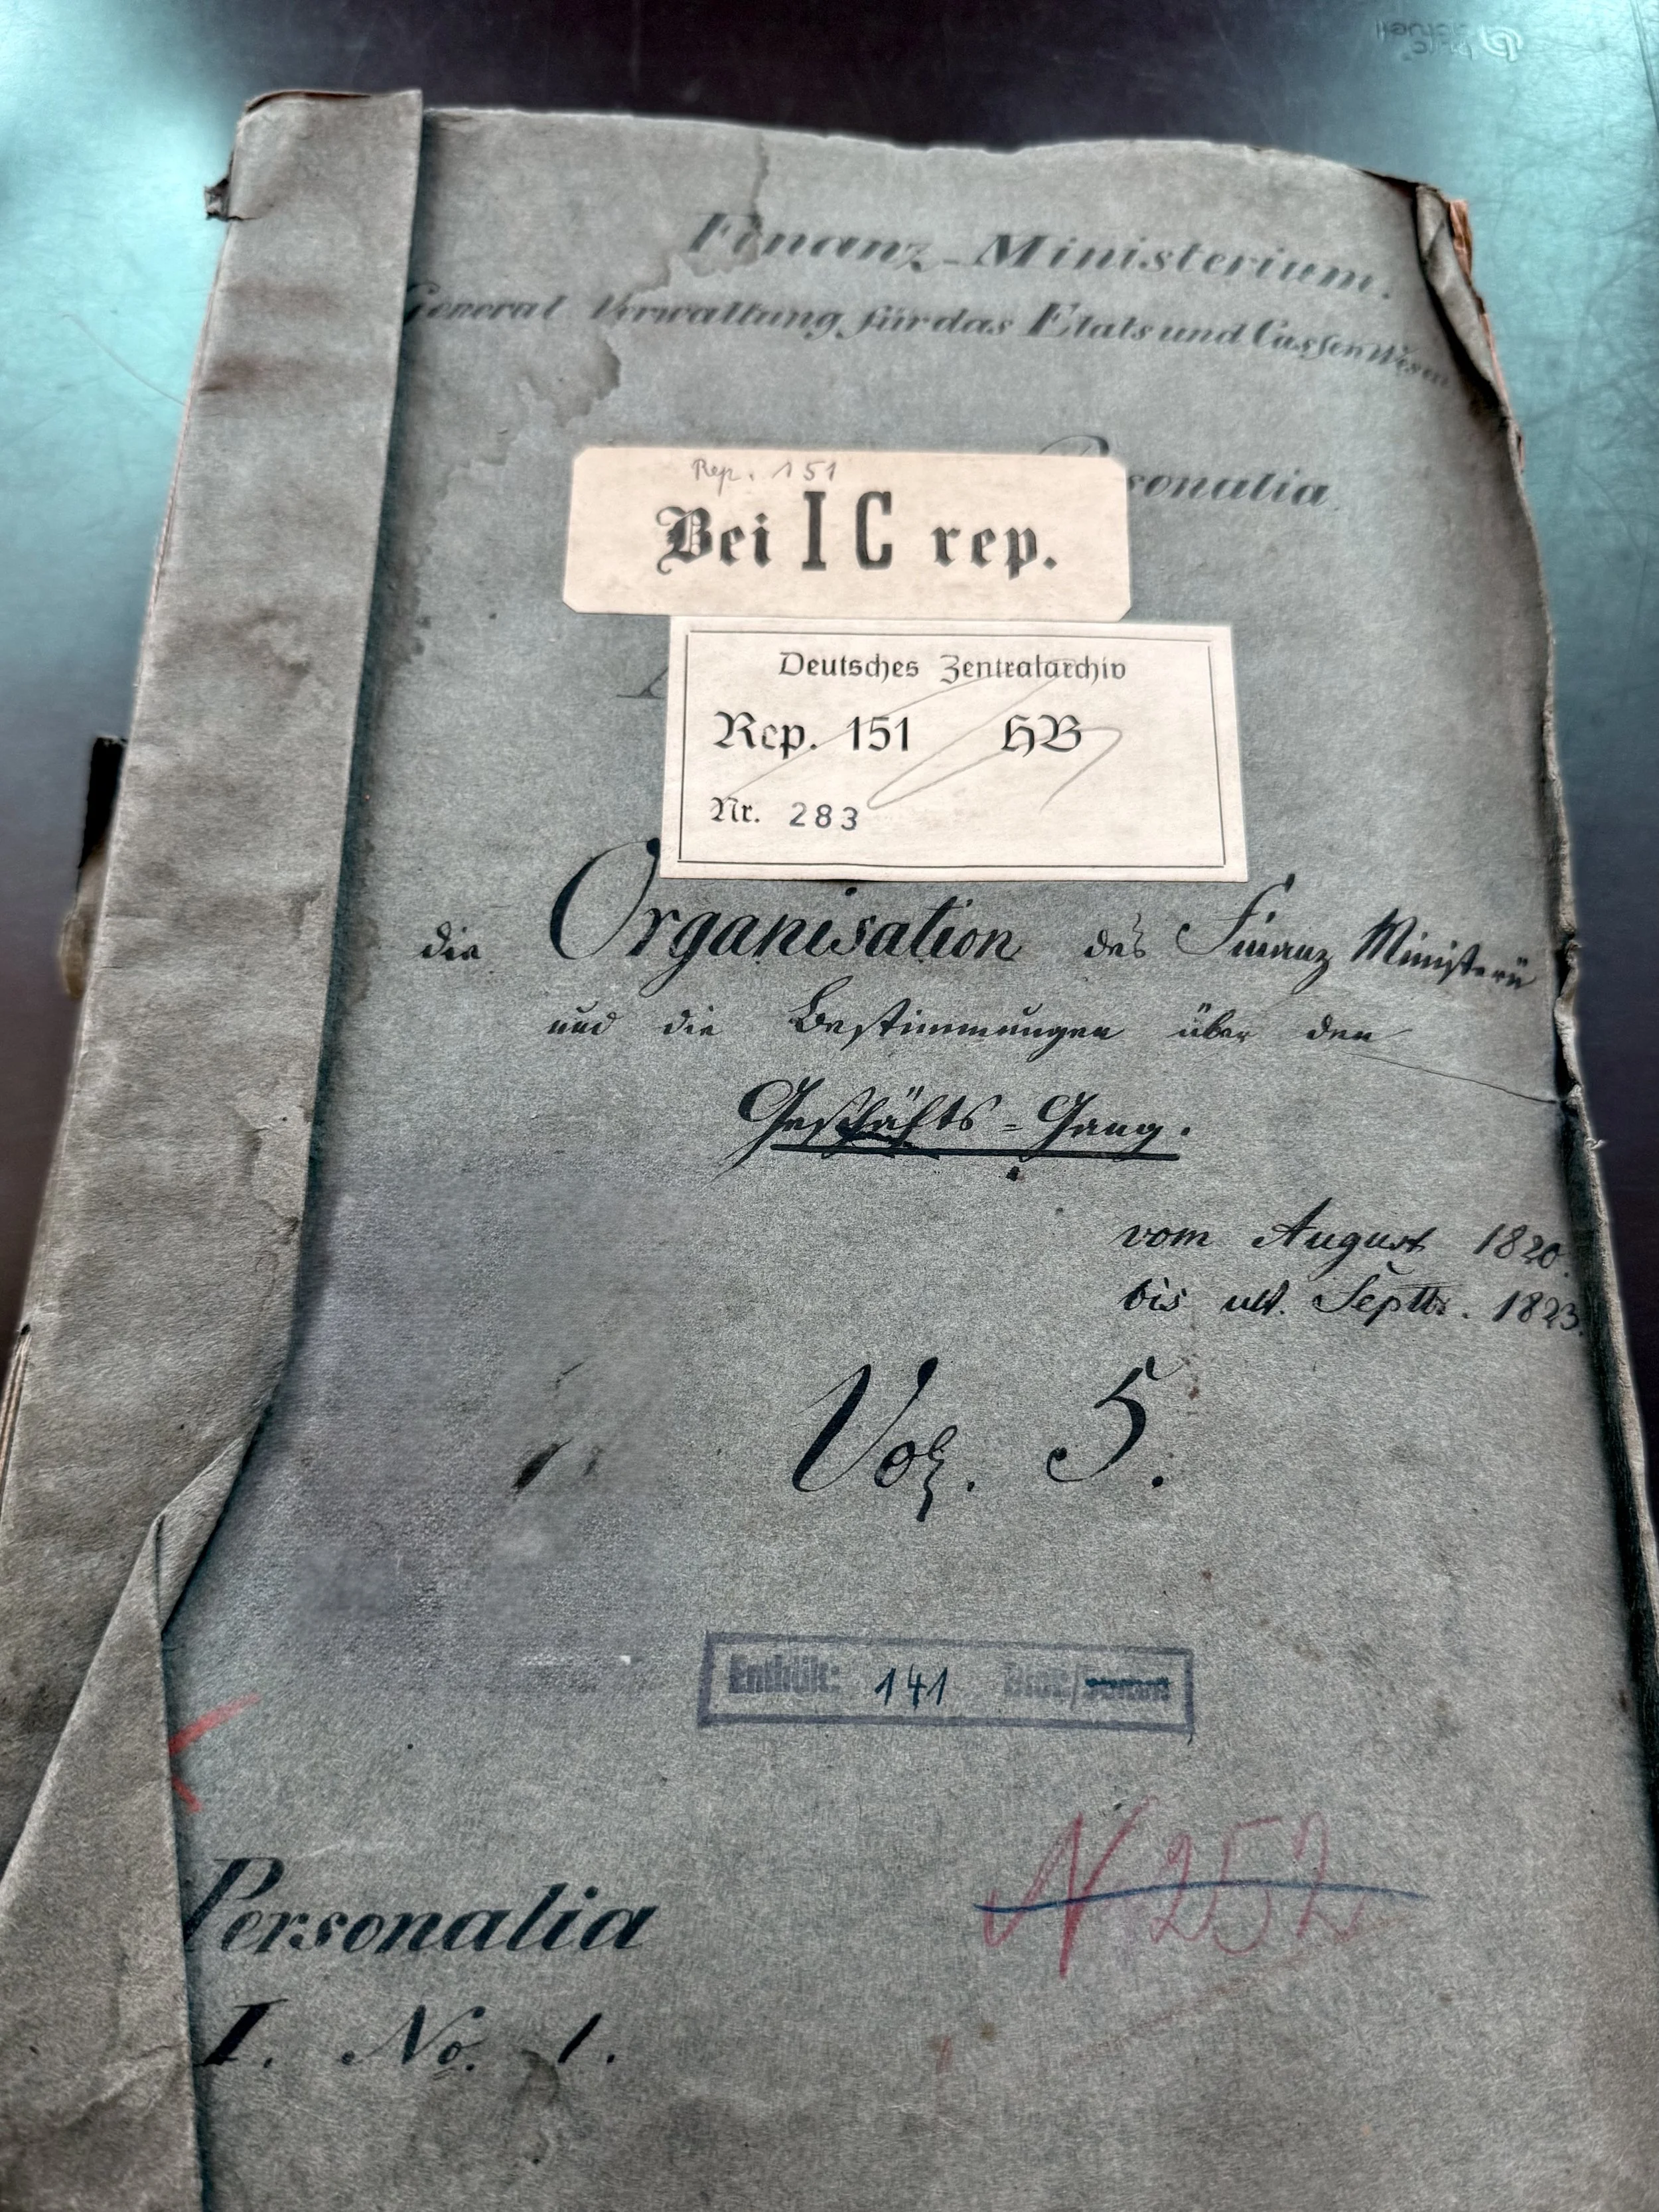 Finanz-Ministerium.
General Verwaltung für das Etats und Cassen Wesen
Rep. 151
Bei I C rep.
sonalia
Deutsches Zentralarchiv
Rep. 151 HB
Nr. 283
die Organisation des Finanz Ministerii
und die Bestimmungen über den
Geschäfts=Gang.
vom August 1820.
bis ult. Septbr. 1823.
Vol. 5.
Enthält: 141 Blatt/
Personalia
I. No. 1.
N 252